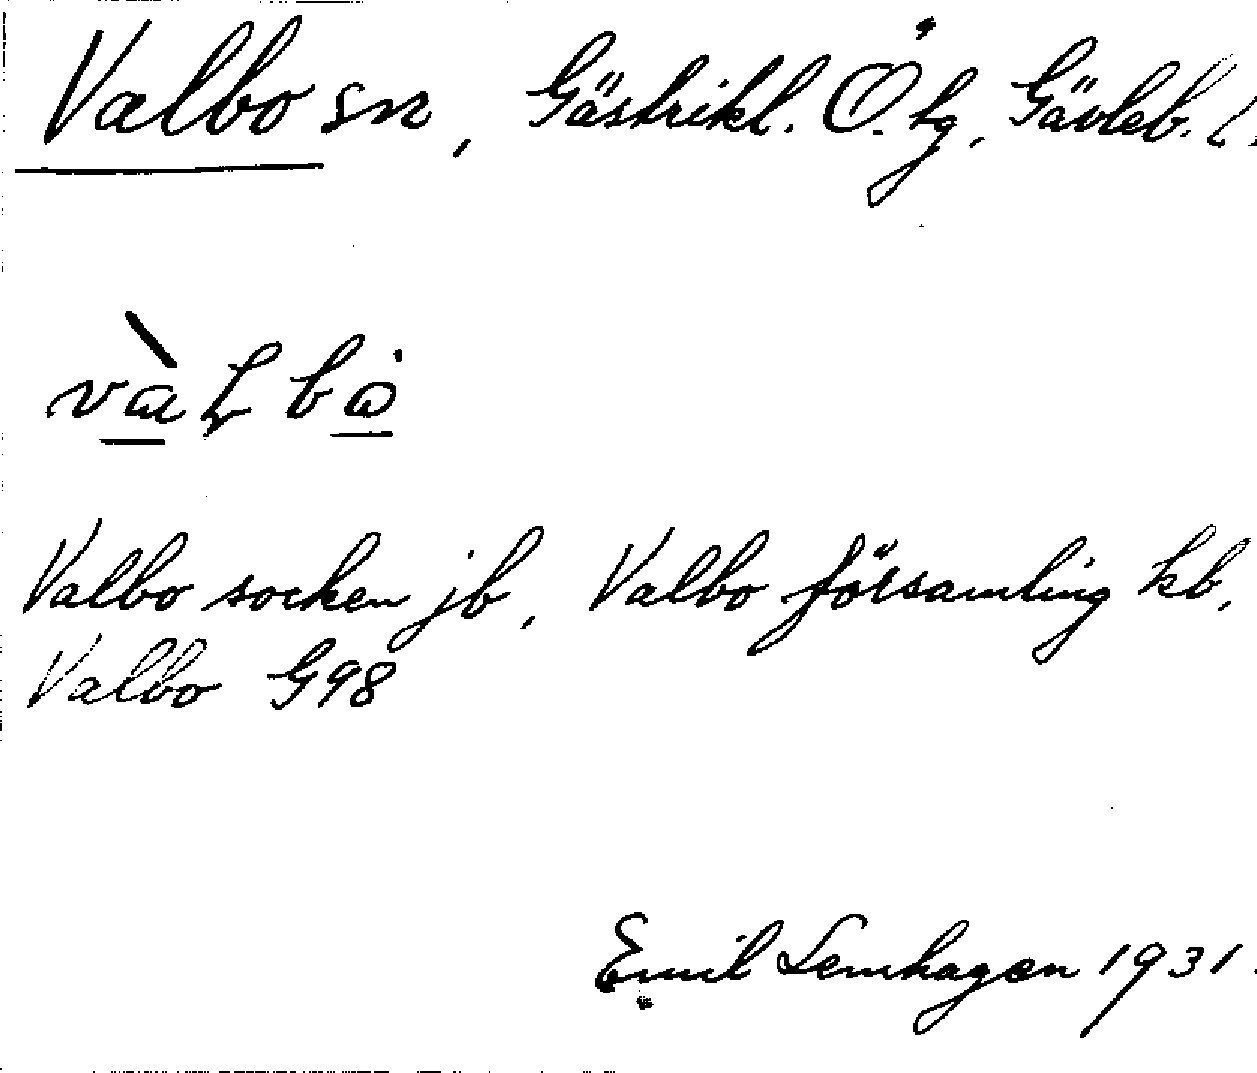 Valbo sn, Gästrikl. Ö. tg, Gävleb. l.
Valbo socken jb, Valbo församling kb,
Valbo G98
Emil Lemhagen 1931.